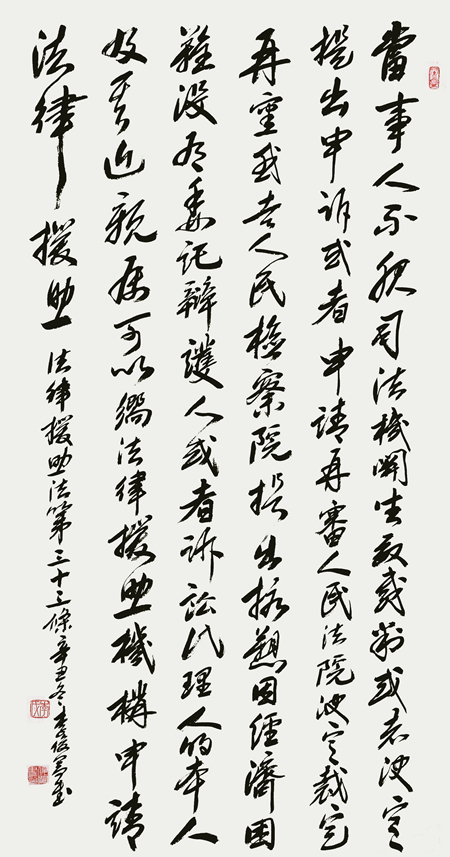 當事人不服司法機關生效裁判或者決定
提出申訴或者申請再審人民法院決定裁定
再審或者人民檢察院提出抗訴因經濟困
難沒有委託辯護人或者訴訟代理人的本人
及其近親屬可以嚮法律援助機構申請
法律援助 法律援助法第三十三條辛丑冬李